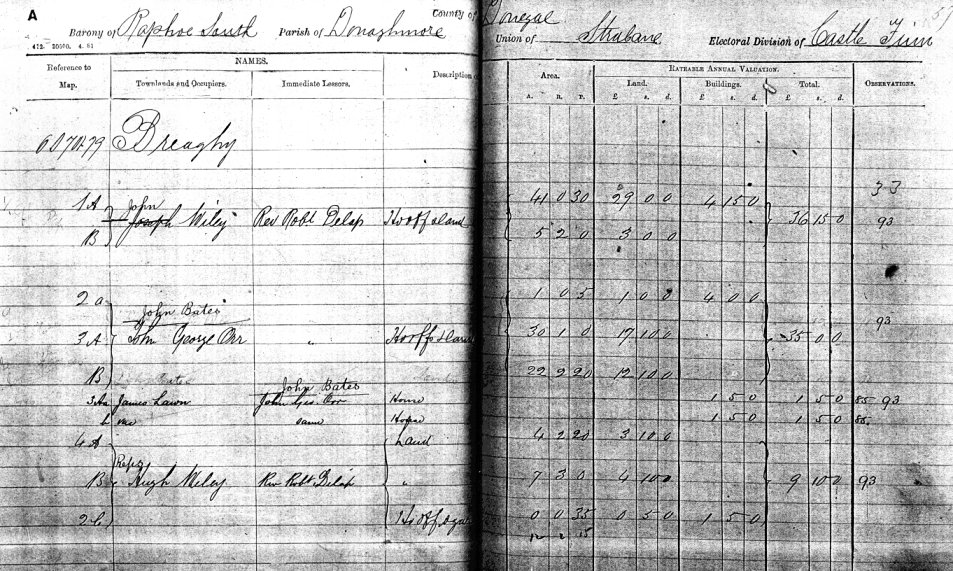 A
County of Donegal
Barony of Raphoe South Parish of Donaghmore Union of Strabane Electoral Division of Castle Finn
Reference to Map. NAMES. Description of Area. RATEABLE ANNUAL VALUATION. OBSERVATIONS.
Townlands and Occupiers. Immediate Lessors. Land. Buildings. Total.
A. R. P. £ s. d. £ s. d. £ s. d.
Dreaghy
33
John
1 A 41 0 30 29 0 0 4 15 0
Joseph Wiley Rev Robt Delap Ho off & land 36 15 0 93
B 5 2 0 3 0 0
2 a 1 0 5 1 0 0 4 0 0
John Bates 93
3 A Jno George Orr " Ho off & land 30 1 0 17 10 0 35 0 0
B 22 2 20 12 10 0
John Bates
3 Aa James Lawn John Geo. Orr House 1 5 0 1 5 0 85 93
b same House 1 5 0 1 5 0 85
4 A Land 4 2 20 3 10 0
Reps
B Hugh Wiley Rev Robt Delap " 7 3 0 4 10 0 9 10 0 93
Ho off & gar 0 0 35 0 5 0 1 5 0
12 2 15